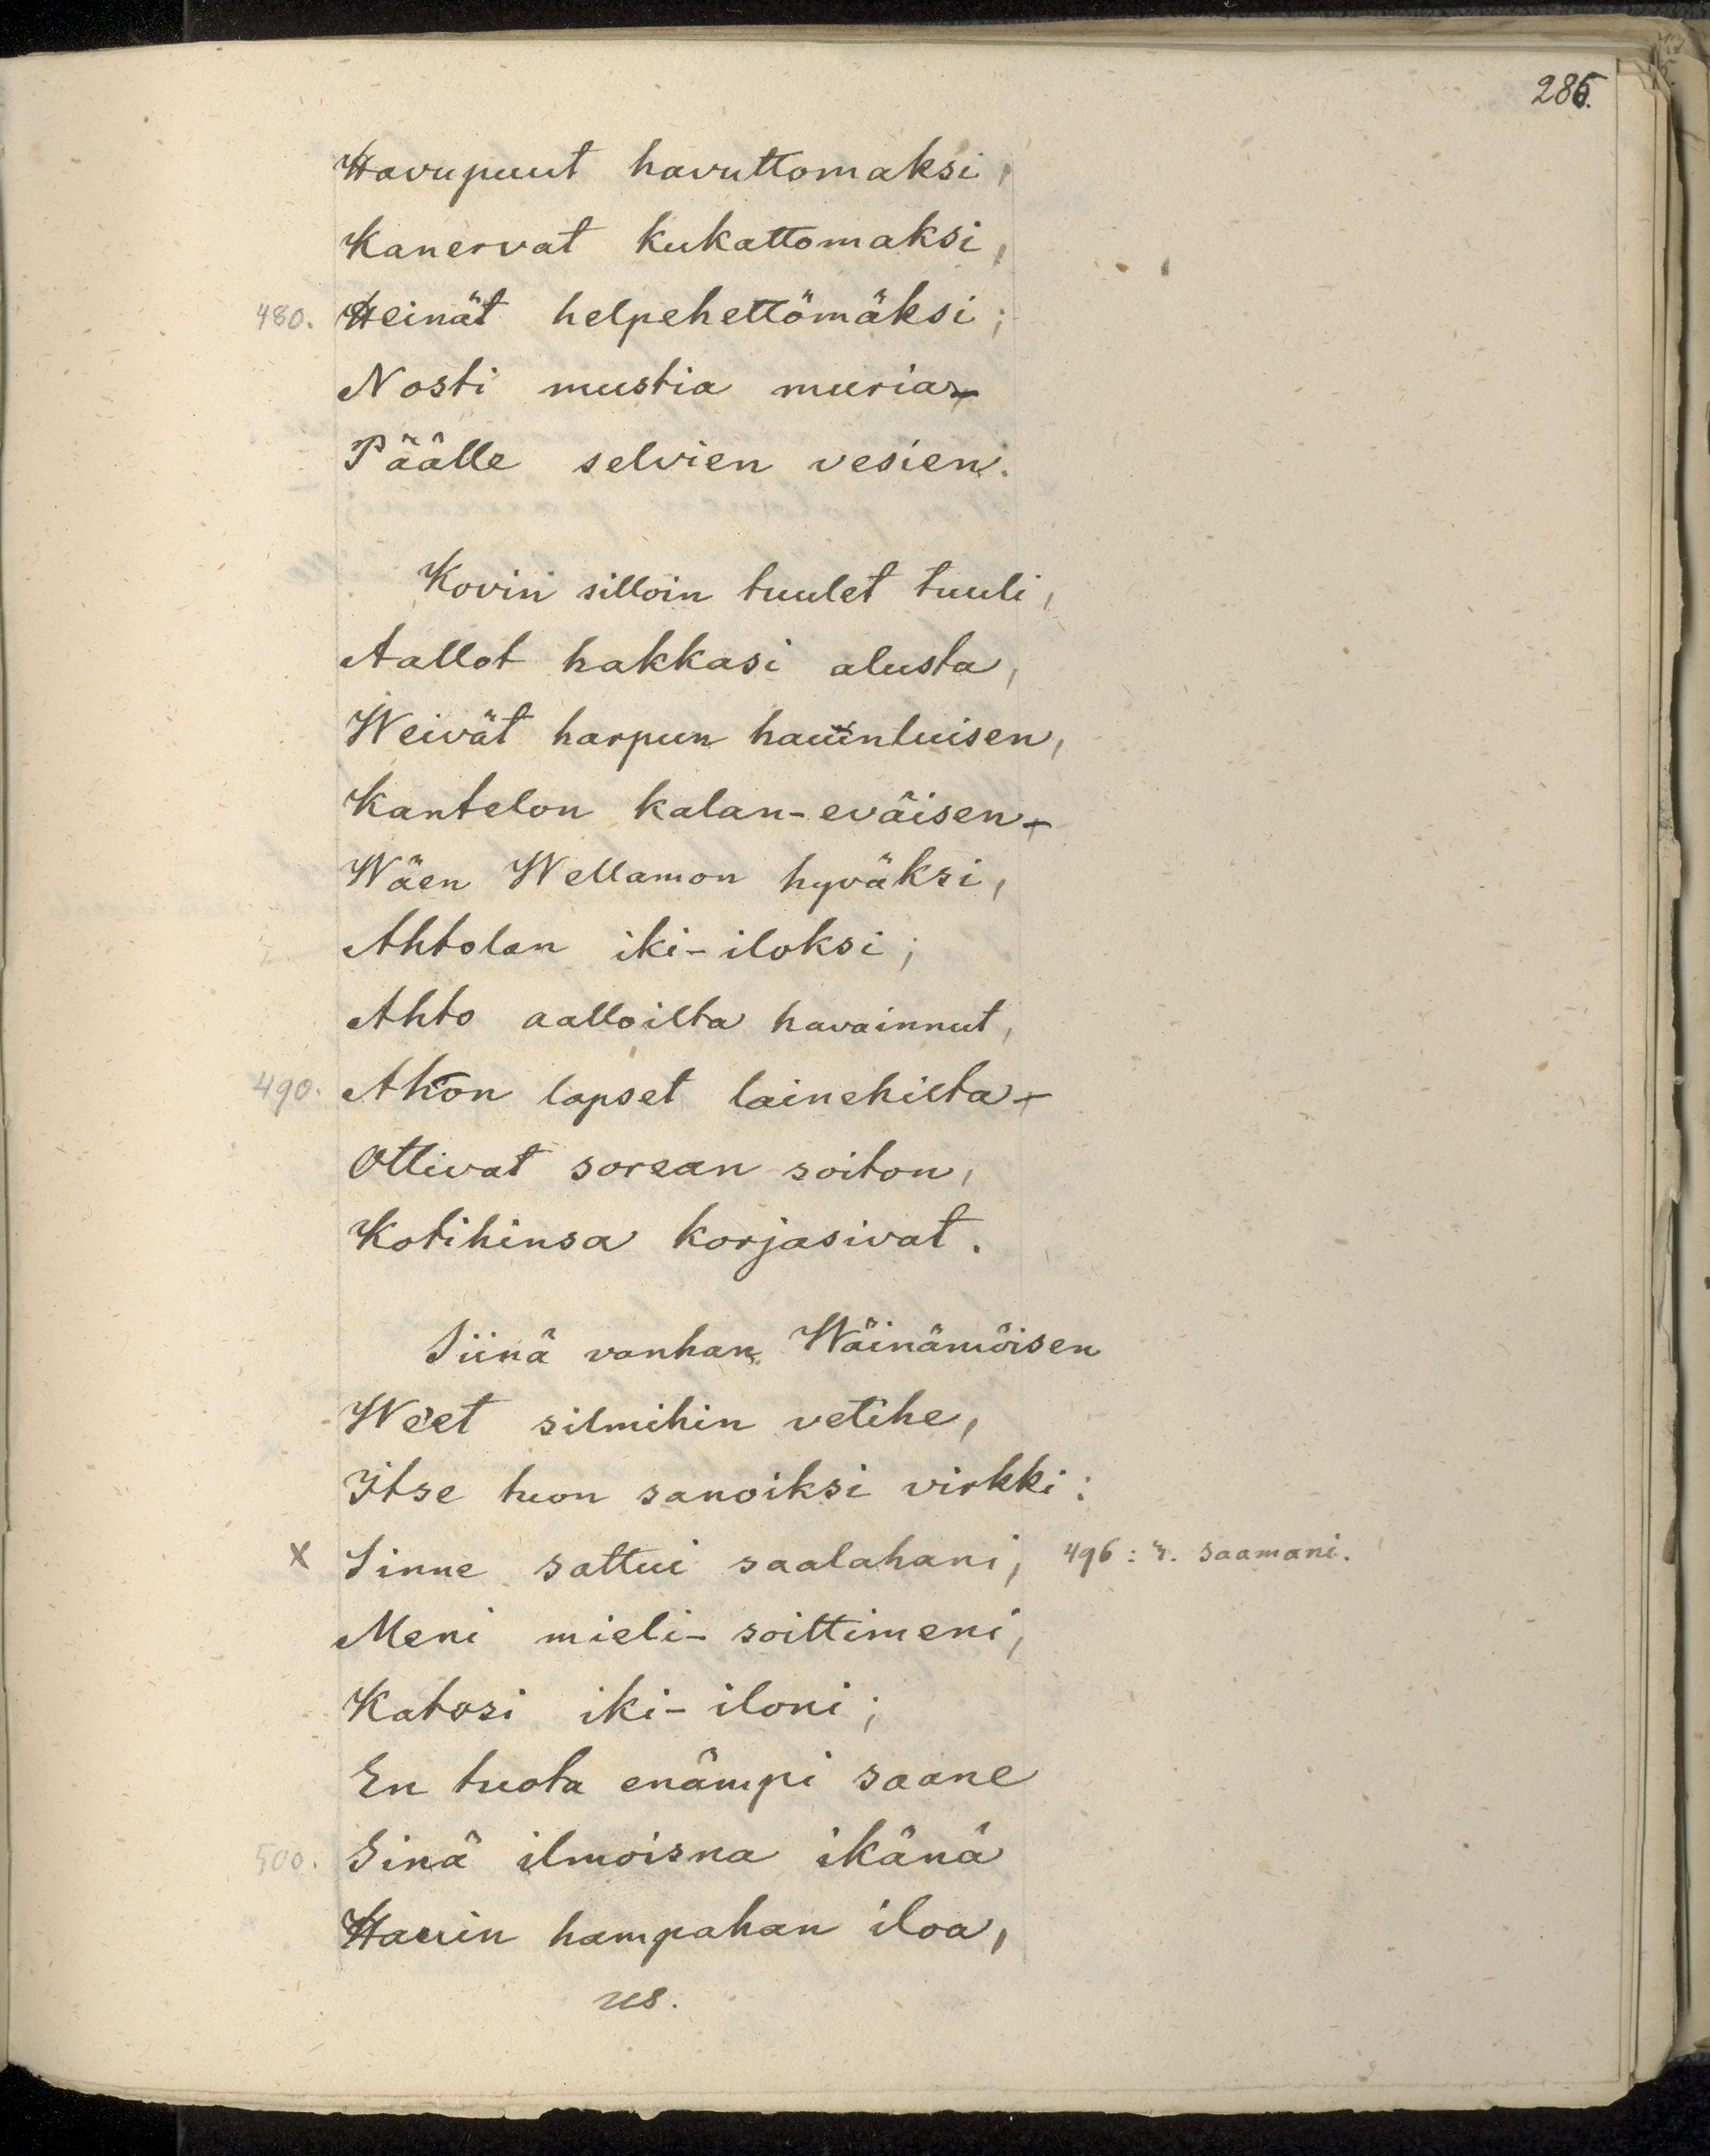 285.
Havupuut havuttomaksi,
Kanervat kukattomaksi,
480. Heinät helpehettömäksi;
Nosti mustia muria-
Päälle selvien vesien.
Kovin silloin tuulet tuuli,
Aallot hakkasi alusta,
Weivät harpun hauinluisen,
Kantelon kalan-eväisen-
Wäen Wellamon hyväksi,
Ahtolan iki-iloksi;
Ahto aalloilta havainnut,
490. Ahon lapset lainehilta-
Ottivat sorean soiton,
Kotihinsa korjasivat.
Siinä vanhan Wäinämöisen
We'et silmihin vetihe,
Itse tuon sanoiksi virkki:
x Sinne sattui saalahani, 496: r. saamani.
Meni mieli-soittimeni,
Katosi iki-iloni;
En tuota enämpi saane
500. Sinä ilmoisna ikänä
Hauin hampahan iloa,
us.